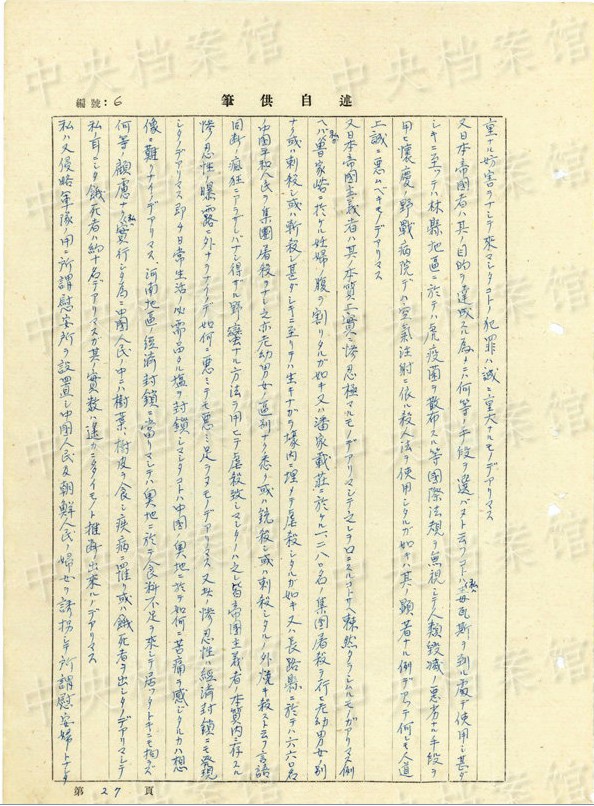 中央档案馆
述自供筆
編號:6
重ナル妨害ヲナシテ來マシタコトノ犯罪ハ誠ニ重大ナルモノデアリマス
又日本帝國者ハ其ノ目的ヲ達成スル為メニハ何等ノ手段ヲ選バズト云フコトハ私ハ毒瓦斯ヲ到ル處デ使用シ甚ダ
シキニ至ツテハ林縣地區ニ於テハ虎疫菌ヲ散布スル等國際法規ヲ無視シテ人類毀滅ノ悪劣ナル手段ヲ
用ヒ懷慶ノ野戰病院デハ空氣注射ニ依ル殺人法ヲ使用シタルガ如キハ其ノ顕著ナル例デアツテ何レモ人道
上誠ニ悪ムベキモノデアリマス
又日本帝國主義者ハ其ノ本質上實ニ惨忍極マルモノデアリマシテ之ヲ口ニスルコトサヘ慄然タラシムルモノガアリマス例
ヘバ私ノ魯家峪ニ於ケル妊婦ノ腹ヲ割リタルガ如キ又ハ潘家戴莊ニ於ケル一、二八〇名ノ集團屠殺ヲ行ヒ老幼男女ノ別
ナク或ハ刺殺シ或ハ斬殺シ甚ダシキニ至リテハ生キナガラ壕内ニ埋メテ虐殺シタルガ如キ又ハ長路縣ニ於テハ六六〇名
ノ中國平和人民ヲ集團屠殺ヲナシ之亦老幼男女ノ區別ナク悉ク或ハ銃殺シ或ハ刺殺シタルノ外燒キ殺スト云フ言語
同断ノ瘋狂ニアラザレバナシ得ザル野蠻ナル方法ヲ用ヒテ虐殺致シマシタノハ之レ皆帝國主義者ノ本質内ニ存スル
惨忍性ノ曝露ニ外ナラナイノデ如何ニ悪ミテモ悪ミ足ラヌモノデアリマス 又此ノ惨忍性ハ經濟封鎖ニモ發現
シタノデアリマス即チ日常生活ノ必需品タル塩ヲ封鎖シマシタコトハ中國ノ奥地ニ於テ如何ニ苦痛ヲ感ジタルカハ想
像ニ難クナイノデアリマス、河南地區ノ經濟封鎖ニ當リマシテハ奥地ニ於テ食料不足ヲ來シテ居ツタトキニモ拘ラズ
何等ノ顧慮ナク私ハ實行シタ為ニ中國人民ノ中ニハ樹葉、樹皮ヲ食シ疾病ニ罹リ或ハ餓死者ヲ出シタノデアリマシテ
私ノ耳ニシタ餓死者ハ約十名デアリマスガ其ノ實数ハ遙カニ多イモノト推断ノ出来ルノデアリマス
私ハ又侵略軍隊ノ用ニ所謂慰安所ヲ設置シ中國人民及朝鮮人民ノ婦女ヲ誘拐シテ所謂慰安婦トナサ
第27頁